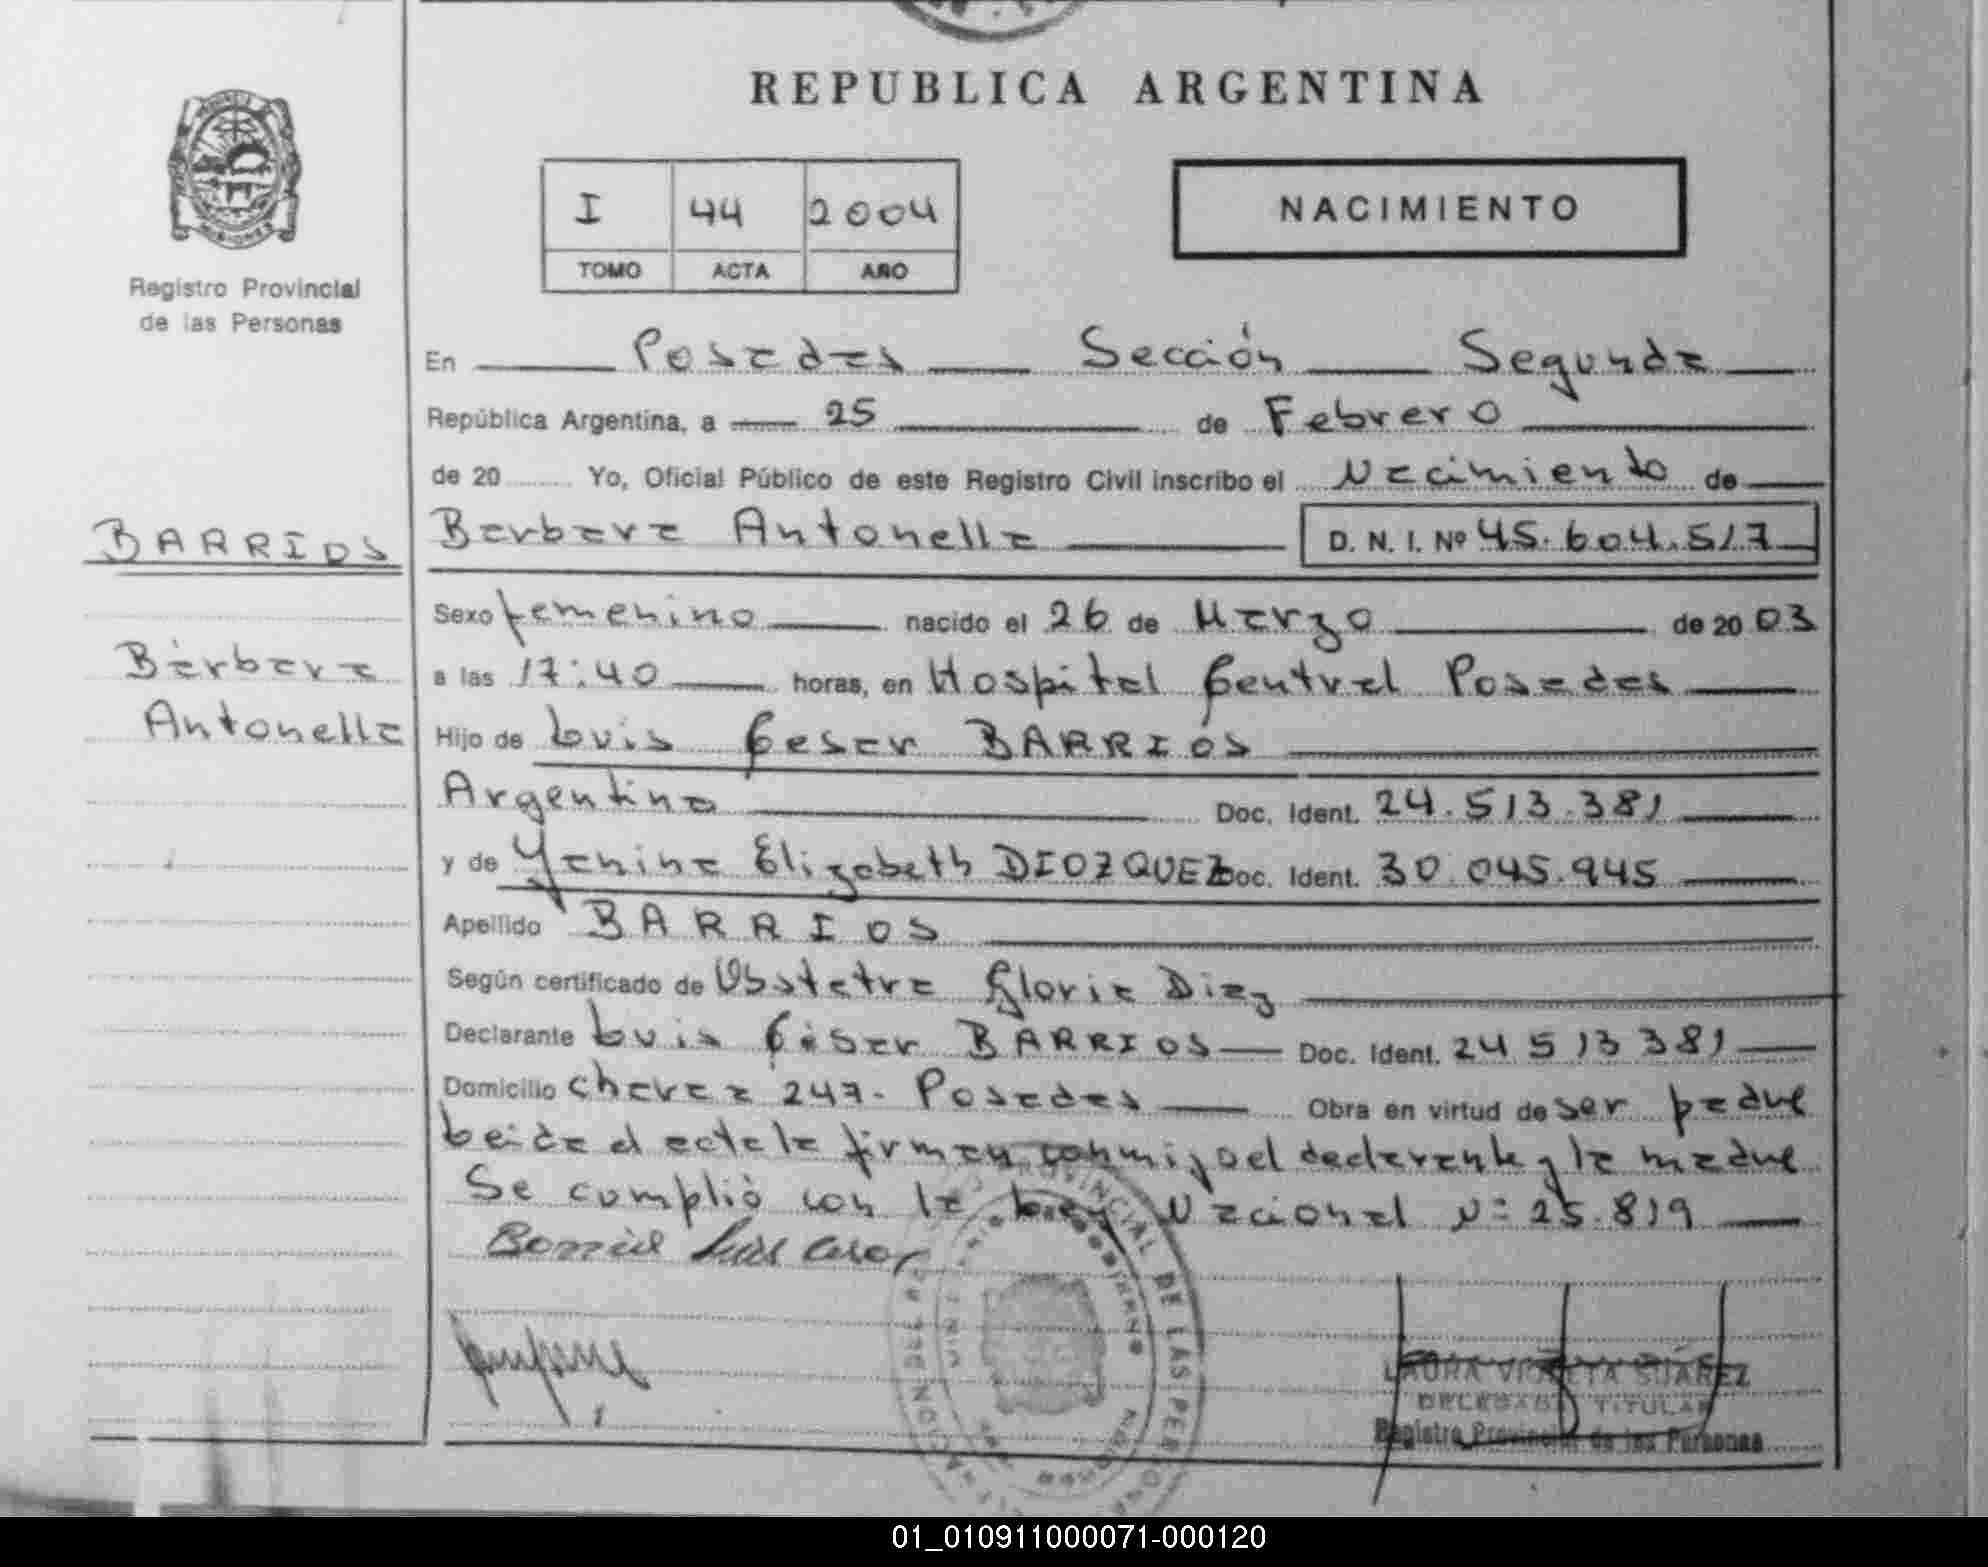 REPUBLICA ARGENTINA
I 44 2004
TOMO ACTA AÑO
NACIMIENTO
MISIONES
Registro Provincial
de las Personas
En Posadas Sección Segunda
República Argentina, a 25 de Febrero
de 20 Yo, Oficial Público de este Registro Civil inscribo el Nacimiento de
BARRIOS
Barbara Antonella D. N. I. Nº 45.604.517
Sexo femenino nacido el 26 de Marzo de 20 03
Bárbara
a las 17:40 horas, en Hospital Central Posadas
Antonella
Hijo de Luis Cesar BARRIOS
Argentina Doc. Ident. 24.513.381
y de Yanina Elizabeth DIOZQUEZ Doc. Ident. 30.045.945
Apellido BARRIOS
Según certificado de Obstetra Gloria Diaz
Declarante Luis César BARRIOS Doc. Ident. 24 513 381
Domicilio 247 - Posadas Obra en virtud de ser padre
Leida el acta la firman conmigo el declarante y la madre
Se cumplió con la Ley Nacional Nº 25.819
Barrios Luis Cesar
PROVINCIAL DE LAS PERSONAS
LAURA SUÁREZ
DELEGADA TITULAR
Registro Provincial de las Personas
01_010911000071-000120